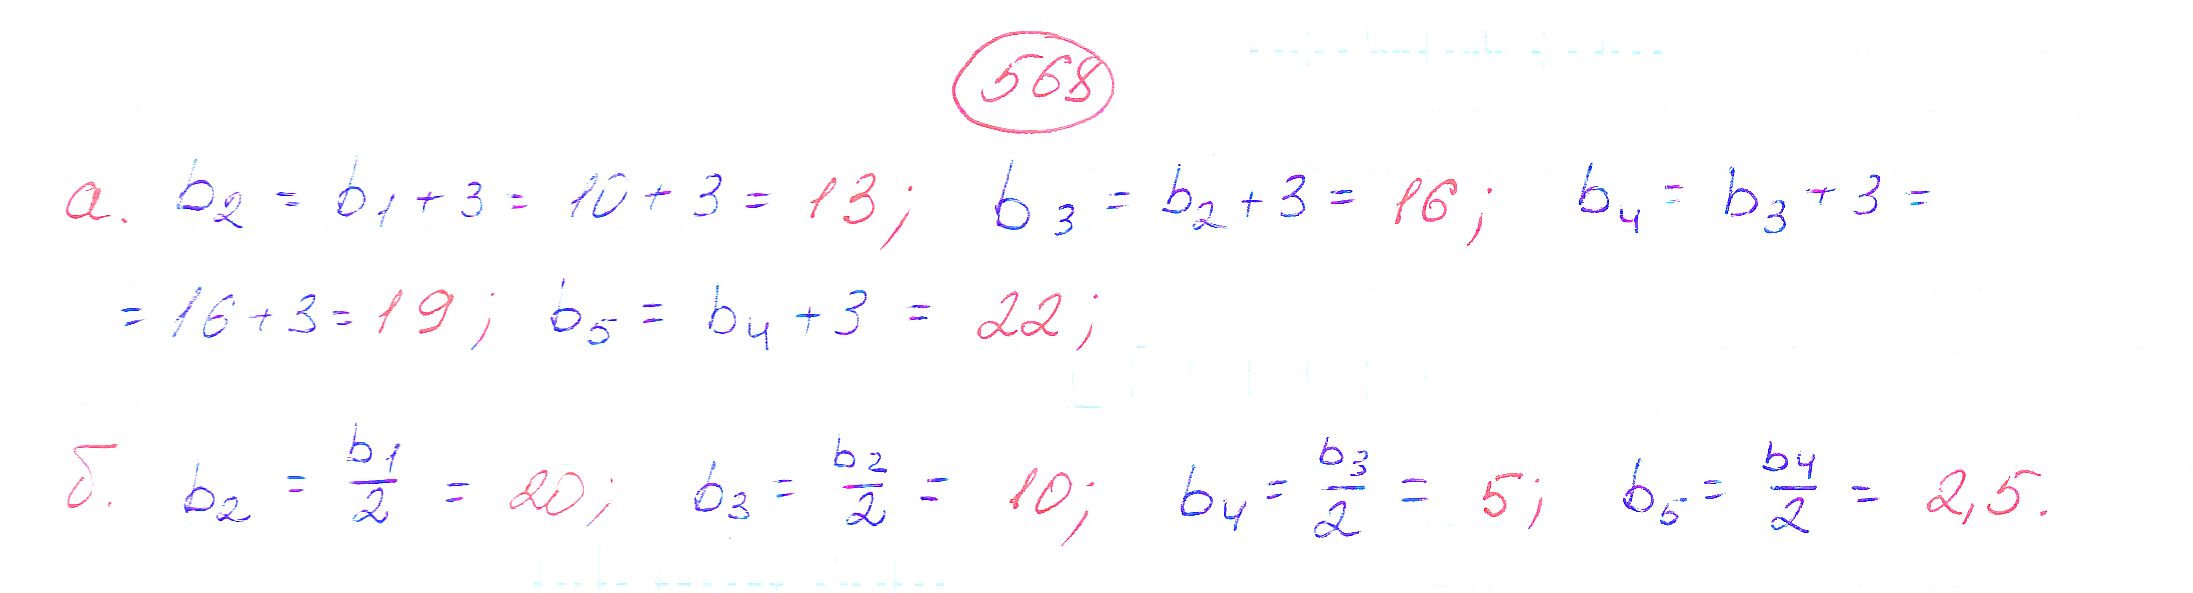 568
а. b₂ = b₁ + 3 = 10 + 3 = 13; b₃ = b₂ + 3 = 16; b₄ = b₃ + 3 =
= 16 + 3 = 19; b₅ = b₄ + 3 = 22;
б. b₂ = b₁/2 = 20; b₃ = b₂/2 = 10; b₄ = b₃/2 = 5; b₅ = b₄/2 = 2,5.